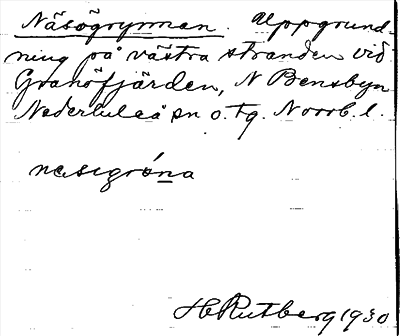 Näsögrynnan. Uppgrund-
ning på västra stranden vid
Granöfjärden, N Bensbyn
Nederluleå sn o. tg. Norrb. l.
næsıgróna
H Rutberg 1930